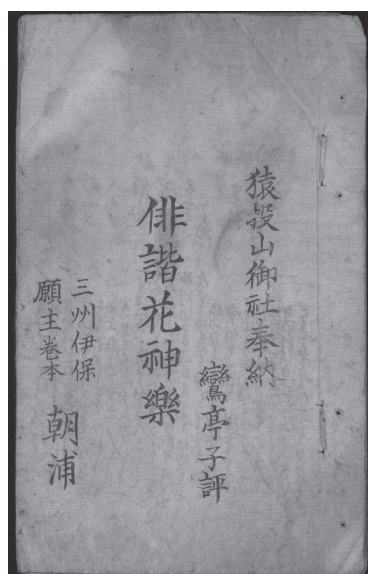 猿投山御社奉納
鸞亭子評
俳諧花神樂
三州伊保
願主巻本
朝浦